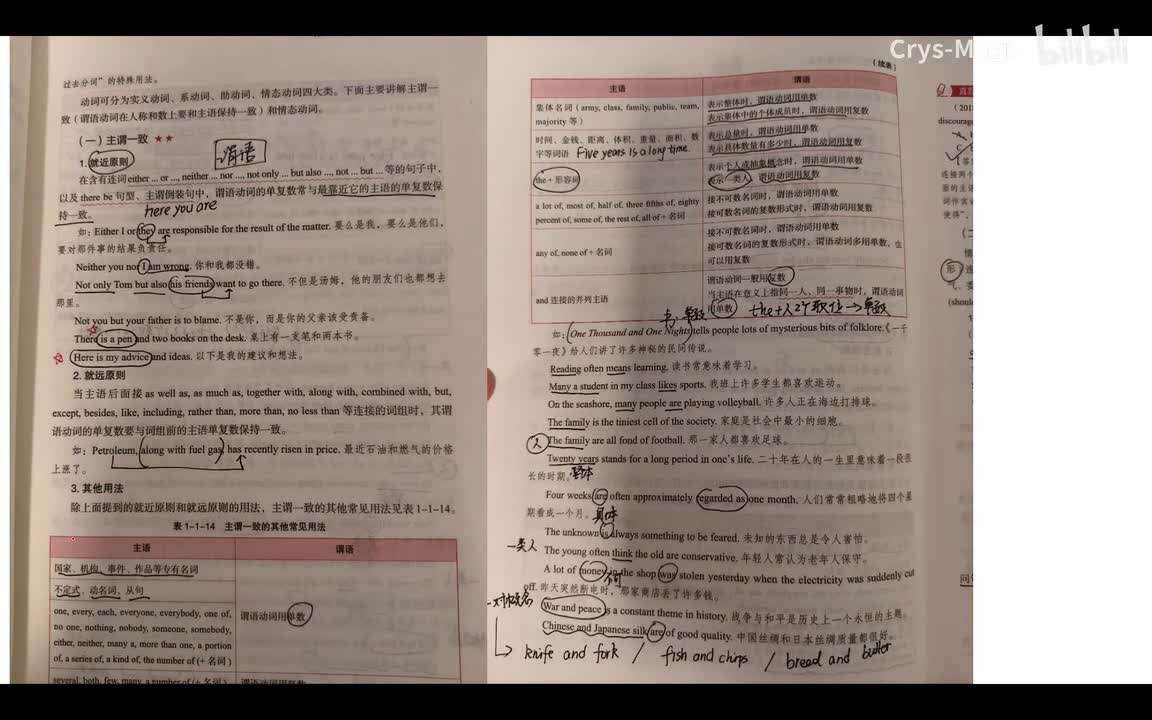 Crys-M
bilibili
过去分词”的特殊用法。
动词可分为实义动词、系动词、助动词、情态动词四大类。下面主要讲解主谓一
致（谓语动词在人称和数上要和主语保持一致）和情态动词。
（一）主谓一致 ★★
谓语
1. 就近原则
在含有连词 either ... or ..., neither ... nor ..., not only ... but also ..., not ... but ... 等的句子中，
以及 there be 句型、主谓倒装句中，谓语动词的单复数常与最靠近它的主语的单复数保
持一致。
here you are
如：Either I or they are responsible for the result of the matter. 要么是我，要么是他们，
要对那件事的结果负责任。
Neither you nor I am wrong. 你和我都没错。
Not only Tom but also his friends want to go there. 不但是汤姆，他的朋友们也都想去
那里。
Not you but your father is to blame. 不是你，而是你的父亲该受责备。
There is a pen and two books on the desk. 桌上有一支笔和两本书。
Here is my advice and ideas. 以下是我的建议和想法。
2. 就远原则
当主语后面接 as well as, as much as, together with, along with, combined with, but,
except, besides, like, including, rather than, more than, no less than 等连接的词组时，其谓
语动词的单复数要与词组前的主语单复数保持一致。
如：Petroleum, along with fuel gas, has recently risen in price. 最近石油和燃气的价格
上涨了。
3. 其他用法
除上面提到的就近原则和就远原则的用法，主谓一致的其他常见用法见表1-1-14。
表 1-1-14 主谓一致的其他常见用法
主语 谓语
国家、机构、事件、作品等专有名词
不定式、动名词、从句
one, every, each, everyone, everybody, one of,
no one, nothing, nobody, someone, somebody,
either, neither, many a, more than one, a portion
of, a series of, a kind of, the number of (+ 名词)
谓语动词用单数
several, both, few, many, a number of (+ 名词) 谓语动词用复数
（续表）
主语 谓语
集体名词（army, class, family, public, team,
majority 等）
表示整体时，谓语动词用单数
表示集体中的个体成员时，谓语动词用复数
时间、金钱、距离、体积、重量、面积、数
字等词语 Five years is a long time.
表示总量时，谓语动词用单数
表示具体数量有多少时，谓语动词用复数
the + 形容词
表示个人或抽象概念时，谓语动词用单数
表示一类人，谓语动词用复数
a lot of, most of, half of, three fifths of, eighty
percent of, some of, the rest of, all of + 名词
接不可数名词时，谓语动词用单数
接可数名词的复数形式时，谓语动词用复数
any of, none of + 名词
接不可数名词时，谓语动词用单数
接可数名词的复数形式时，谓语动词多用单数，也
可以用复数
and 连接的并列主语
谓语动词一般用复数
当主语在意义上指同一人、同一事物时，谓语动词
用单数 the+人2个职位→单数
书，单数
如：One Thousand and One Nights tells people lots of mysterious bits of folklore.《一千
零一夜》给人们讲了许多神秘的民间传说。
Reading often means learning. 读书常意味着学习。
Many a student in my class likes sports. 我班上许多学生都喜欢运动。
On the seashore, many people are playing volleyball. 许多人正在海边打排球。
The family is the tiniest cell of the society. 家庭是社会中最小的细胞。
人 The family are all fond of football. 那一家人都喜欢足球。
Twenty years stands for a long period in one's life. 二十年在人的一生里意味着一段很
长的时期。整体
Four weeks are often approximately regarded as one month. 人们常常粗略地将四个星
期看成一个月。具体
The unknown is always something to be feared. 未知的东西总是令人害怕。
一类人 The young often think the old are conservative. 年轻人常认为老年人保守。
A lot of money in the shop was stolen yesterday when the electricity was suddenly cut
off. 昨天突然断电时，那家商店丢了许多钱。
War and peace is a constant theme in history. 战争与和平是历史上一个永恒的主题。
Chinese and Japanese silk are of good quality. 中国丝绸和日本丝绸质量都很好。
knife and fork / fish and chips / bread and butter